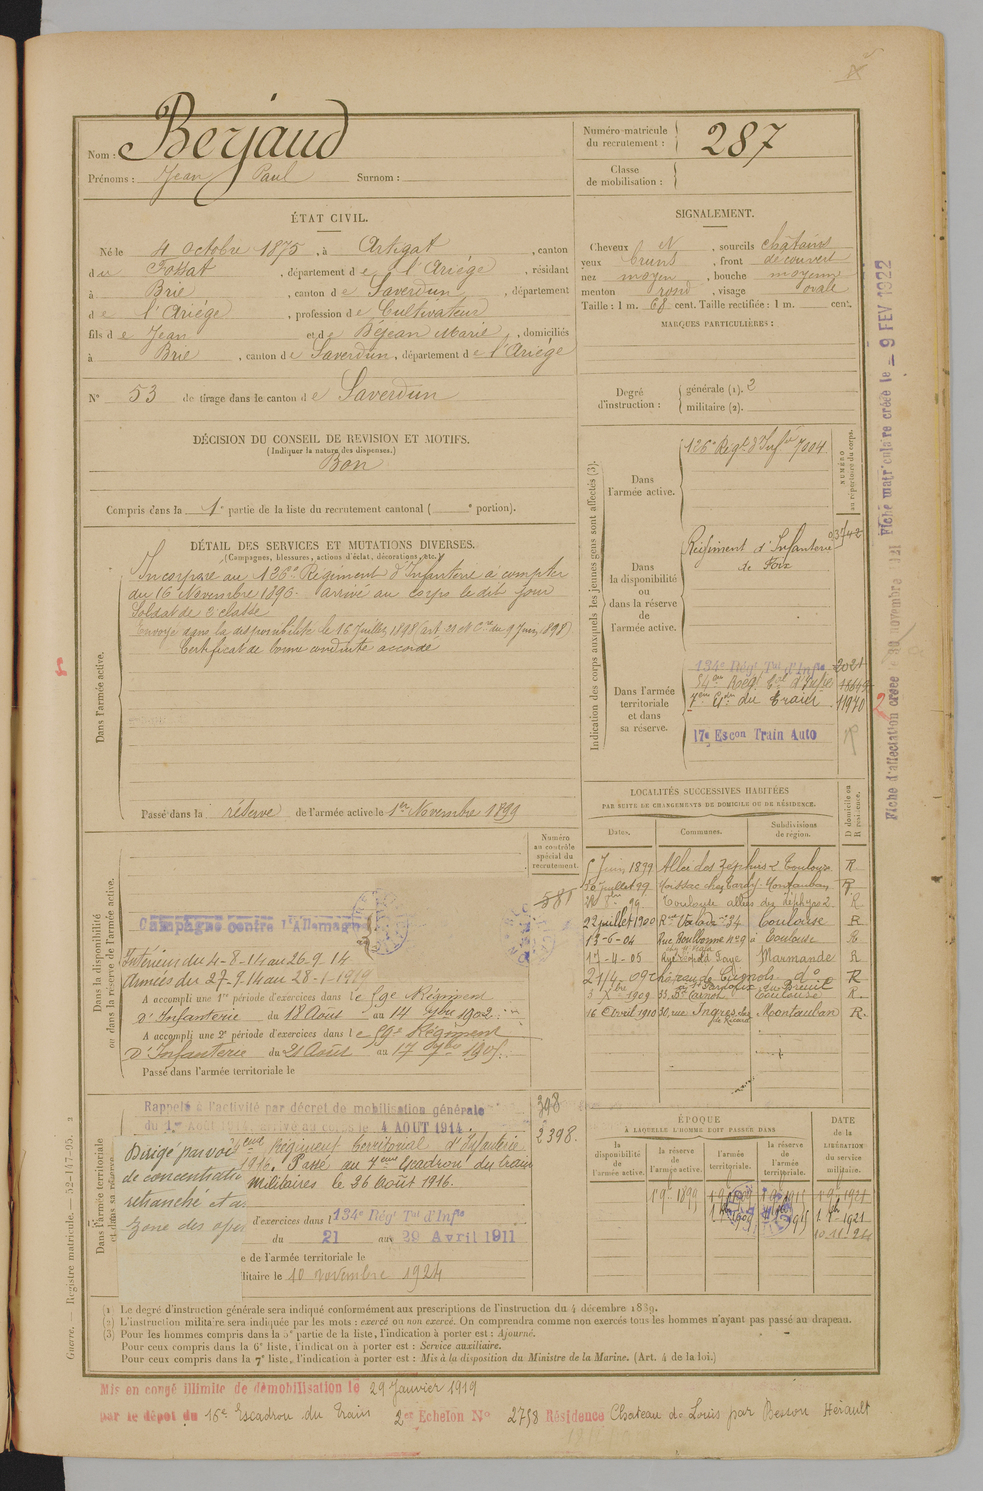 Nom : Berjaud
Prénoms : Jean Paul Surnom :
Numéro-matricule du recrutement : 287
Classe de mobilisation :
ÉTAT CIVIL.
Né le 4 octobre 1875, à Artigat, canton
du Fossat, département de l'Ariège, résidant
à Brie, canton de Saverdun, département
de l'Ariège, profession de Cultivateur
fils de Jean et de Béjean Marie, domiciliés
à Brie, canton de Saverdun, département de l'Ariège
N° 53 de tirage dans le canton de Saverdun
SIGNALEMENT.
Cheveux N, sourcils châtains
yeux bruns, front découvert
nez moyen, bouche moyenne
menton rond, visage ovale
Taille : 1 m. 68 cent. Taille rectifiée : 1 m. cent.
MARQUES PARTICULIÈRES :
Degré d'instruction : générale (1). 2
militaire (2).
DÉCISION DU CONSEIL DE REVISION ET MOTIFS.
(Indiquer la nature des dispenses.)
Bon
Compris dans la 1e partie de la liste du recrutement cantonal ( e portion).
DÉTAIL DES SERVICES ET MUTATIONS DIVERSES.
(Campagnes, blessures, actions d'éclat, décorations, etc.)
Dans l'armée active.
Incorporé au 126e Régiment d'Infanterie à compter
du 16 Novembre 1896. arrivé au corps le dit jour
Soldat de 2e classe
Envoyé dans la disponibilité le 16 Juillet 1898
Certificat de bonne conduite accordé
Passé dans la réserve de l'armée active le 1er Novembre 1899
Indication des corps auxquels les jeunes gens sont affectés (3).
NUMÉRO au répertoire du corps.
Dans l'armée active.
126e Régt d'Infie 7004
Dans la disponibilité ou dans la réserve de l'armée active.
Régiment d'Infanterie
de Foix
Dans l'armée territoriale et dans sa réserve.
134e Régt Tal d'Infie 2021
7em Edn du Train 11970
17e Escon Train Auto
Fiche matriculaire créée le - 9 FEV 1922
Fiche d'affectation créée le 30 novembre
LOCALITÉS SUCCESSIVES HABITÉES
PAR SUITE DE CHANGEMENTS DE DOMICILE OU DE RÉSIDENCE.
Dates. Communes. Subdivisions de région. D domicile ou R résidence.
5 Juin 1899 Allée des Zéphirs 2 Toulouse R.
Toulouse allées des Zéphyrs 2. R
22 juillet 1900 34 Toulouse R
13-6-04 Rue Boulbonne no 9 à Toulouse R
17-4-05 Faye Marmande R
1909 33 Bd Carnot Toulouse R.
16 Avril 1910 30, rue Ingres Montauban R.
Numéro au contrôle spécial du recrutement.
581
Dans la disponibilité ou dans la réserve de l'armée active.
Campagne contre l'Allemagne
Intérieur du 4-8-14 au 26-9-14
Armées du 27-9-14 au 28-1-1919
A accompli une 1re période d'exercices dans le 59e Régiment
d'Infanterie du 18 Aout au 14 7bre 1902.
A accompli une 2e période d'exercices dans le 59e Régiment
d'Infanterie du 21 Août au 17 7bre 1905.
Passé dans l'armée territoriale le
Dans l'armée territoriale et dans sa réserve
Rappelé à l'activité par décret de mobilisation générale
du 1er Août 1914. arrivé au corps le 4 AOUT 1914.
398
2398.
Régiment territorial d'Infanterie
1916. Passé au 7eme Escadron du train
militaires le 26 Août 1916.
Dirigé par voie
de concentratio
retranché et a
zone des opé
d'exercices dans l 134e Régt Tal d'Infie
du 21 au 29 Avril 1911
e de l'armée territoriale le
litaire le 10 novembre 1924
ÉPOQUE
À LAQUELLE L'HOMME DOIT PASSER DANS
la disponibilité de l'armée active. la réserve de l'armée active. l'armée territoriale. la réserve de l'armée territoriale.
DATE de la LIBÉRATION du service militaire.
1 9 1899 1 9 1921
1921
(1) Le degré d'instruction générale sera indiqué conformément aux prescriptions de l'instruction du 4 décembre 1889.
(2) L'instruction militaire sera indiquée par les mots : exercé ou non exercé. On comprendra comme non exercés tous les hommes n'ayant pas passé au drapeau.
(3) Pour les hommes compris dans la 5e partie de la liste, l'indication à porter est : Ajourné.
Pour ceux compris dans la 6e liste, l'indication à porter est : Service auxiliaire.
Pour ceux compris dans la 7e liste, l'indication à porter est : Mis à la disposition du Ministre de la Marine. (Art. 4 de la loi.)
Guerre. — Registre matricule. — 52-147-95.
Mis en congé illimité de démobilisation le 29 Janvier 1919
par le dépot du 16e Escadron du Train 2e Echelon No 2758 Résidence Chateau de Louis par Bessou Hérault